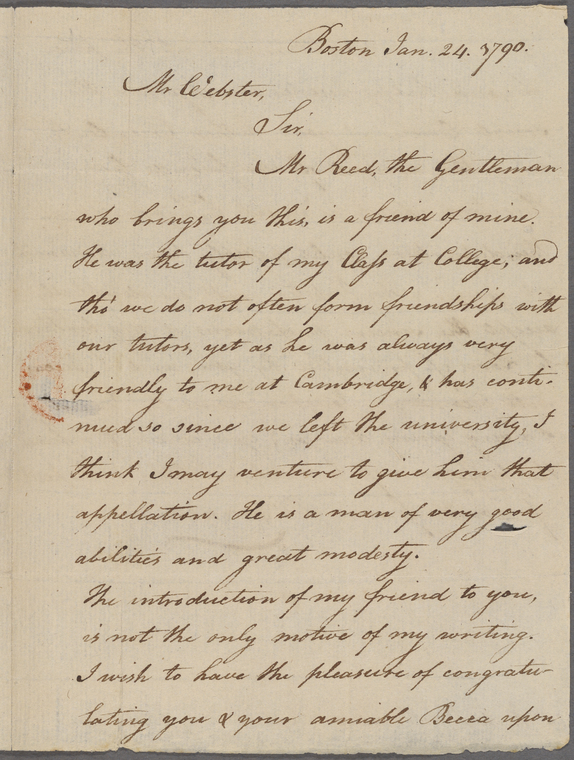 Boston Jan. 24. 1790.
Mr Webster,
Sir,
Mr Reed, the Gentleman
who brings you this, is a friend of mine.
He was the tutor of my Class at College; and
tho' we do not often form friendships with
our tutors, yet as he was always very
friendly to me at Cambridge, & has conti-
nued so since we left the university, I
think I may venture to give him that
appellation. He is a man of very good
abilities and great modesty.
The introduction of my friend to you,
is not the only motive of my writing.
I wish to have the pleasure of congratu-
lating you & your amiable Becca upon